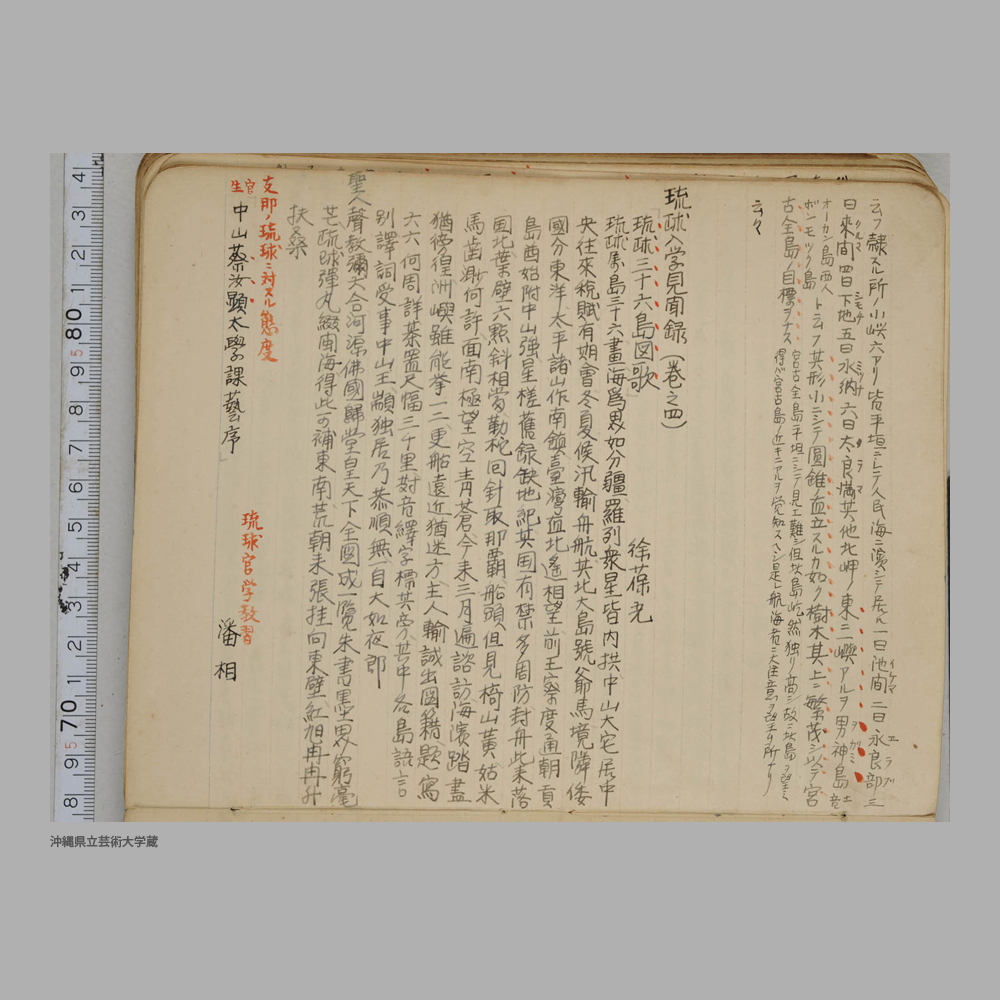 云フ隷スル所ノ小嶼六アリ皆平垣ニシテ人民海ニ濱シテ居ル一曰池間二曰永良部三
曰来間四曰下地五曰水納六曰太良満其他北岬ノ東ニ一嶼アルヲ男神島土音
オーカン島西人ボンモツク島トニムフ其形小ニシテ圓錐直立スルカ如ク樹木其上ニ繁茂シ以テ宮
古全島ノ目標ヲナス
宮古全島平坦ニシテ見エ難シ但此島屹然独リ高シ故ニ此島ヲ望ミ得バ宮古島ノ近キニアルヲ覚知スベシ是レ航海者ニ大注意ヲ要スル所ナリ
云々
琉球入学見聞録(巻之四)
「琉球三十六島図歌」 徐葆光
琉球属島三十六画海為界如分疆羅列衆星皆内拱中山大宅居中
央往来税賦有期會冬夏候汛輸舟航其北大島號爺馬境降倭
國分東洋太平諸山作南鎮臺灣直北遙相望前王察度通朝貢
島酋始附中山強星槎舊録缺地紀其国有禁多周防封舟此来落
国北葉壁一點斜相當勒柁回針取那覇船頭但見椅山黄姑米
馬齒渺何許面南極望空青蒼今来三月遍諮訪海濱踏盡
猶徬徨洲嶼雖能挙一二更船遠近猶迷方主人輸誠出圖籍題寫
六六何周詳棊置尺幅三千里對音繹字標其旁其中各島語言
别譯詞受事中山王顓独居乃恭順無一自大如夜郎
聖人聲教彌天合河源佛國歸堂皇天下全圖成一覧朱書墨界窮毫
芒琉球彈丸綴闽海得此可補東南荒朝来張挂向東壁紅旭冉冉升
扶桑
支那ノ琉球ニ対スル態度
官生中山蔡汝顕太學課藝序」 琉球官学教習 潘相
沖縄県立芸術大学蔵